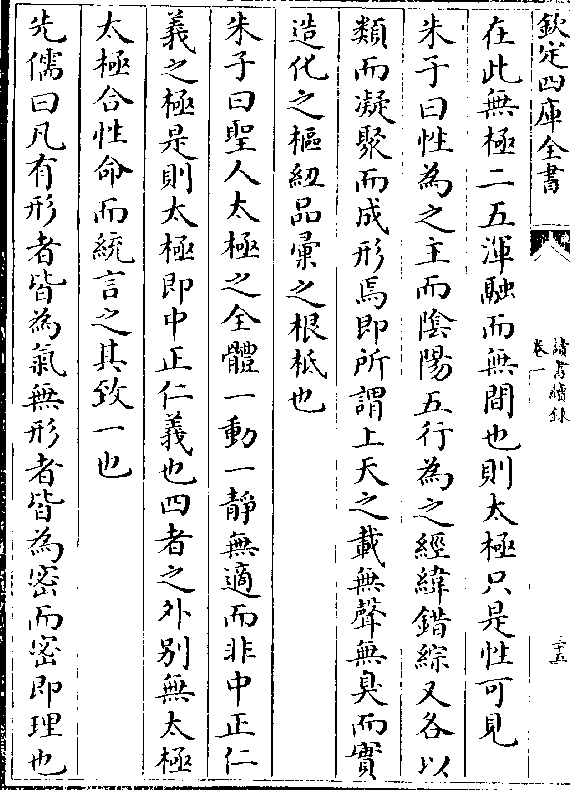 欽定四庫全書
讀書續録
卷一
三十五
在此無極二五渾融而無間也則太極只是性可見
朱子曰性為之主而陰陽五行為之經緯錯綜又各以
類而凝聚而成形焉即所謂上天之載無聲無臭而實
造化之樞紐品彚之根柢也
朱子曰聖人太極之全體一動一靜無適而非中正仁
義之極是則太極即中正仁義也四者之外别無太極
太極合性命而統言之其致一也
先儒曰凡有形者皆為氣無形者皆為密而密即理也